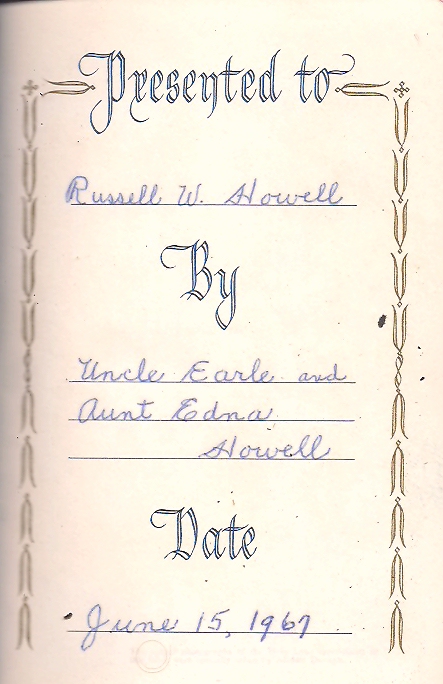 Presented to
Russell W. Howell
By
Uncle Earle and
Aunt Edna
Howell
Date
June 15, 1967